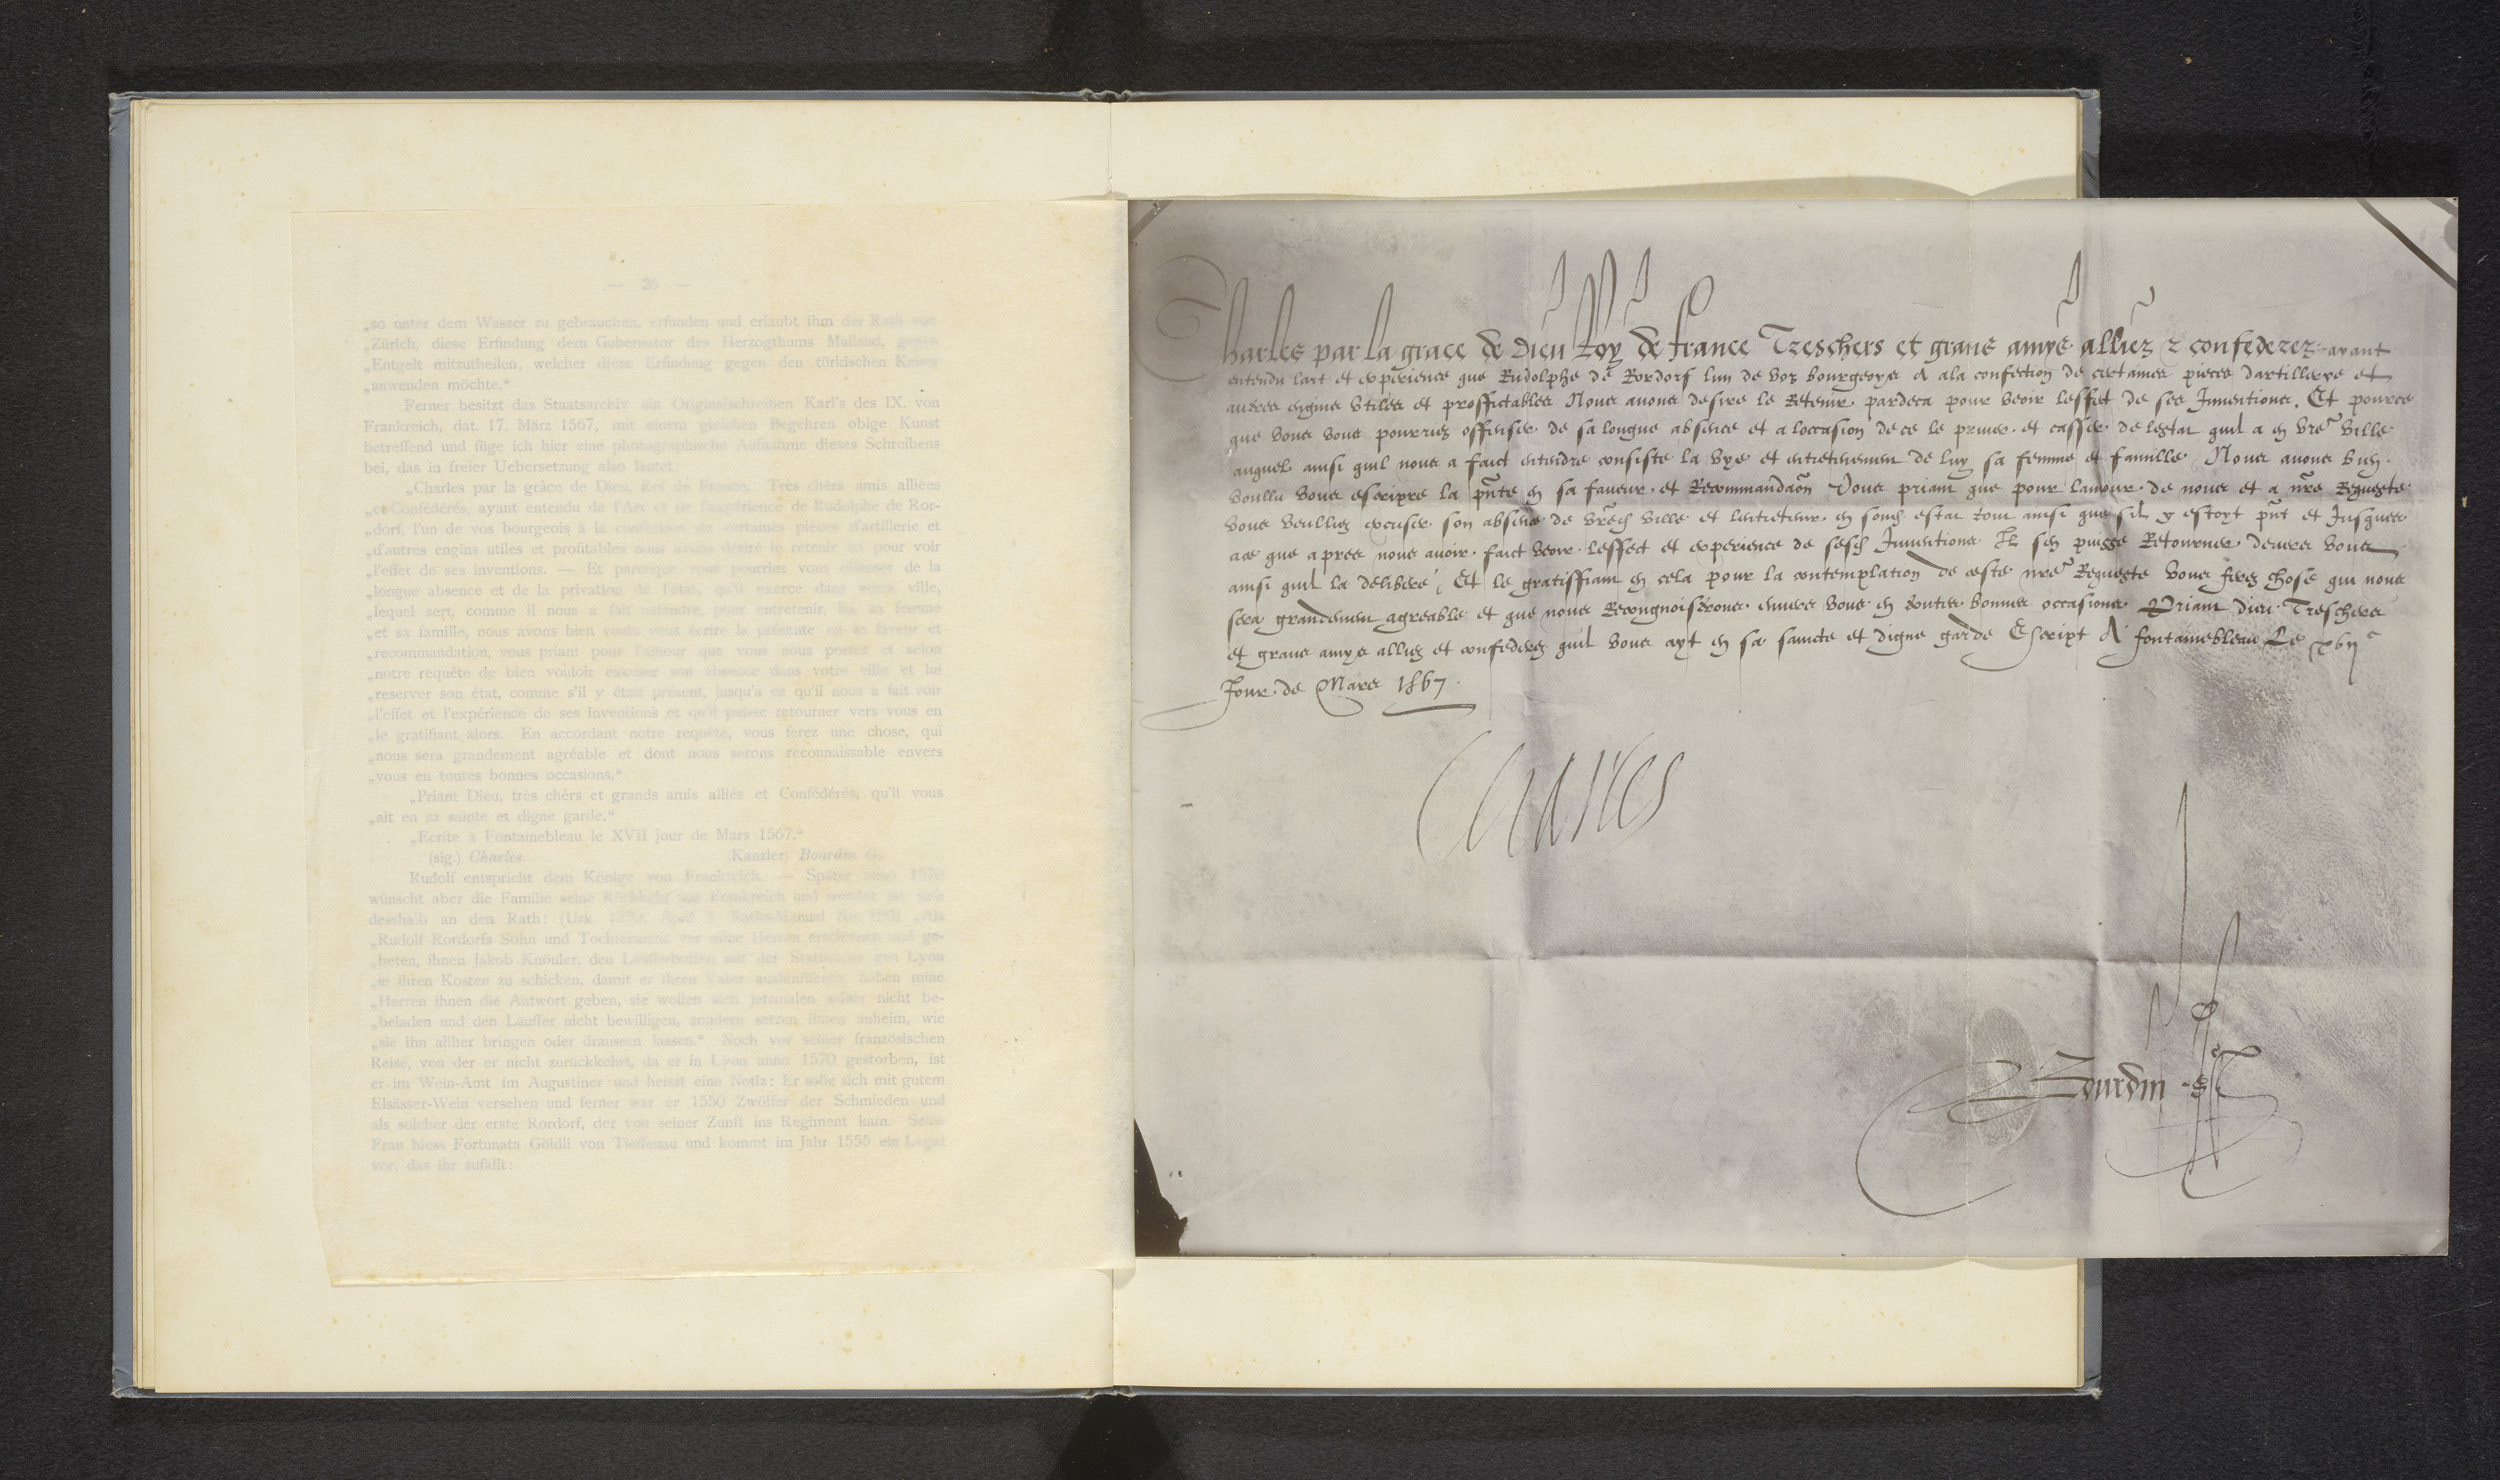 — 26 —
„so unter dem Wasser zu gebrauchen, erfunden und erlaubt ihm der Rath von
„Zürich, diese Erfindung dem Gubernator des Herzogthums Mailand, gegen
„Entgelt mitzutheilen, welcher diese Erfindung gegen den türkischen Kaiser
„anwenden möchte.“
Ferner besitzt das Staatsarchiv ein Originalschreiben Karl's des IX. von
Frankreich, dat. 17. März 1567, mit einem gleichen Begehren obige Kunst
betreffend und füge ich hier eine photographische Aufnahme dieses Schreibens
bei, das in freier Uebersetzung also lautet:
„Charles par la grâce de Dieu, Roi de France. Très chèrs amis alliées
„et Confédérés, ayant entendu de l'Art et de l'expérience de Rudolphe de Ror-
„dorf, l'un de vos bourgeois à la confection de certaines pièces d'artillerie et
„d'autres engins utiles et profitables nous avons désiré le retenir ici pour voir
„l'effet de ses inventions. — Et parceque vous pourriez vous offenser de la
„longue absence et de la privation de l'état, qu'il exerce dans votre ville,
„lequel sert, comme il nous a fait entendre, pour entretenir, lui, sa femme
„et sa famille, nous avons bien voulu vous écrire la présente en sa faveur et
„recommandation, vous priant pour l'amour que vous nous portez et selon
„notre requête de bien vouloir excuser son absence dans votre ville et lui
„reserver son état, comme s'il y était présent, jusqu'a ce qu'il nous a fait voir
„l'effet et l'expérience de ses inventions et qu'il puisse retourner vers vous en
„le gratifiant alors. En accordant notre requête, vous ferez une chose, qui
„nous sera grandement agréable et dont nous serons reconnaissable envers
„vous en toutes bonnes occasions.“
„Priant Dieu, très chèrs et grands amis alliés et Confédérés, qu'il vous
„ait en sa sainte et digne garde.“
„Ecrite à Fontainebleau le XVII jour de Mars 1567.“
(sig.) Charles. Kanzler) Bourdin G.
Rudolf entspricht dem Könige von Frankreich. — Später anno 1570
wünscht aber die Familie seine Rückkehr aus Frankreich und wendet sie sich
desshalb an den Rath: (Urk. „Als
„Rudolf Rordorfs Sohn und Tochtermann vor mine Herren erschienen und ge-
„beten, ihnen Jakob Knöuler, den Laufferbotten mit der Stattbüchs gen Lyon
„in ihren Kosten zu schicken, damit er ihren Vater haben mine
„Herren ihnen die Antwort geben, sie wollen sich jetzmalen seiner nicht be-
„beladen und den Läuffer nicht bewilligen, sondern setzen ihnen anheim, wie
„sie ihn allher bringen oder draussen lassen.“ Noch vor seiner französischen
Reise, von der er nicht zurückkehrt, da er in Lyon anno 1570 gestorben, ist
er im Wein-Amt im Augustiner und heisst eine Notiz: Er solle sich mit gutem
Elsässer-Wein versehen und ferner war er 1550 Zwölfer der Schmieden und
als solcher der erste Rordorf, der von seiner Zunft ins Regiment kam. Seine
Frau hiess Fortunata Göldli von Tieffenau und kommt im Jahr 1555 ein Legat
vor, das ihr zufällt:
Charles par la grace de dieu Roy de france Treschers et grans amys alliez & confederez ayant
entendu lart et experience que Rudolphe de Rordorf lun de voz bourgeoys A ala confection de certaines pieces dartillerye et
autres engins utiles et proffictables Nous avons desire le Retenir pardeca pour veoir leffect de ses Inventions. Et pource
que vous vous pourriez offenser de sa longue absence et a loccasion de ce le priver et casser de lestat quil a en vre ville
auquel ainsi quil nous a faict entendre consiste la vye et entretenement de luy sa femme et famille Nous avons bien
voullu vous escripre la pnte en sa faveur et Recommandaon Vous priant que pour lamour de nous et a nre Requeste
vous veulliez excuser son absence de vred ville et lentretenir en sond estat tout ainsi que sil y estoyt pnt et Jusques
ace que apres nous avoir faict veoir leffect et experience de sesd Inventions Il sen puisse Retourner devers vous
ainsi quil la delibere, Et le gratiffiant en cela pour la contemplation de ceste nre Requeste vous ferez chose qui nous
sera grandement agreable et que nous Recongnoistrons envers vous en toutes bonnes occasions Priant dieu Treschers
et grans amys alliez et confederez quil vous ayt en sa saincte et digne garde Escript A fontainebleau Le xvije
Jour de Mars 1567.
Charles
Bourdin